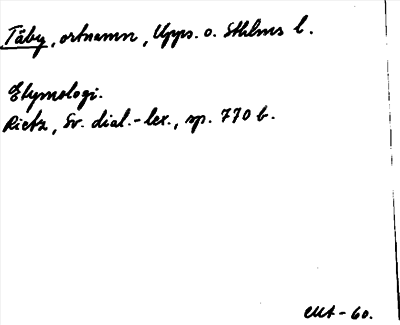 Täby, ortnamn, Upps. o. Sthlms l.
Etymologi.
Rietz, Sv. dial.-lex., sp. 770 b.
-60.